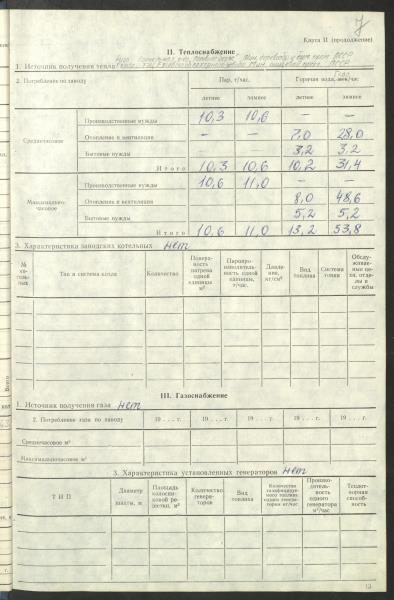 7
Книга II (продолжение)
II. Теплоснабжение
1. Источник получения тепла
2. Потребление по заводу
Пар, т/час.
Горячая вода, м³/час
летнее зимнее летнее зимнее
Среднечасовое
Производственные нужды 10,3 10,6 — —
Отопление и вентиляция — — 7,0 28,0
Бытовые нужды — — 3,2 3,2
Итого 10,3 10,6 10,2 31,4
Максимально-часовое
Производственные нужды 10,6 11,0 — —
Отопление и вентиляция 8,0 48,6
Бытовые нужды 5,2 5,2
Итого 10,6 11,0 13,2 53,8
3. Характеристика заводских котельных нет
№ котельных
Тип и система котла
Количество
Поверхность нагрева одной единицы м²
Паропроизводительность одной единицы, т/час.
Давление, кг/см²
Вид топлива
Система топки
Обслуживаемые цеха, отделы и службы
III. Газоснабжение
1. Источник получения газа нет
2. Потребление газа по заводу
19 . . . г. 19 . . . г. 19 . . . г. 19 . . . г. 19 . . . г.
Среднечасовое м³
Максимальночасовое м³
3. Характеристика установленных генераторов нет
ТИП
Диаметр шахты, м
Площадь колосниковой решетки, м²
Количество генераторов
Вид топлива
Количество газифицируемого топлива одного генератора кг/час
Производительность одного генератора м³/час
Теплотворная способность
13